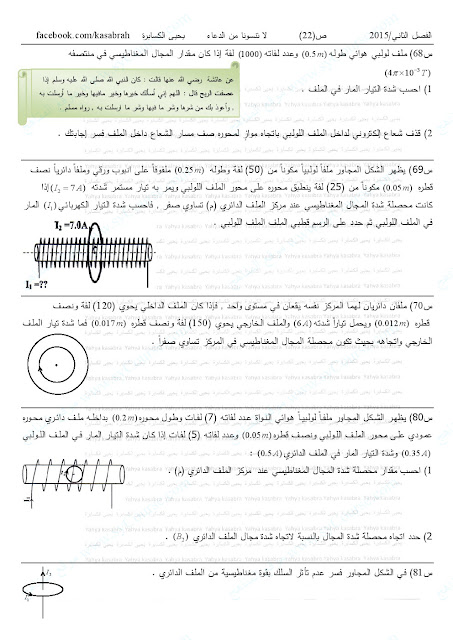 الفصل الثاني/2015 ص(22) لا تنسونا من الدعاء يحيى الكسابرة facebook.com/kasabrah
س68) ملف لولبي هوائي طوله (0.5m) وعدد لفاته (1000) لفة إذا كان مقدار المجال المغناطيسي في منتصفه
(4π×10⁻³T)
1) احسب شدة التيار المار في الملف .
عن عائشة رضي الله عنها قالت : كان النبي الله صلى الله عليه وسلم إذا
عصفت الريح قال : اللهم إني أسألك خيرها وخير مافيها وخير ما أرسلت به
, وأعوذ بك من شرها وشر ما فيها وشر ما ارسلت به , رواه مسلم .
2) قذف شعاع إلكتروني لداخل الملف اللولبي باتجاه مواز لمحوره صف مسار الشعاع داخل الملف فسر إجابتك .
س69) يظهر الشكل المجاور ملفاً لولبياً مكوناً من (50) لفة وطوله (0.25m) ملفوفاً على انبوب ورقي وملفاً دائرياً نصف
قطره (0.05m) مكوناً من (25) لفة ينطبق محوره على محور الملف اللولبي ويمر به تيار مستمر شدته (I₂ = 7A) إذا
كانت محصلة شدة المجال المغناطيسي عند مركز الملف الدائري (م) تساوي صفر , فاحسب شدة التيار الكهربائي (I₁) المار
في الملف اللولبي ثم حدد على الرسم قطبي الملف الملف اللولبي.
I₂=7.0A
I₁=??
س70) ملفان دائريان لهما المركز نفسه يقعان في مستوى واحد , فإذا كان الملف الداخلي يحوي (120) لفة ونصف
قطره (0.012m) ويحمل تياراً شدته (6A) والملف والخارجي يحوي (150) لفة ونصف قطره (0.017m) فما شدة تيار الملف
الخارجي واتجاهه بحيث تكون محصلة المجال المغناطيسي في المركز تساوي صفراً .
س80) يظهر الشكل المجاور ملفاً لولبياً هوائي النواة عدد لفاته (7) لفات وطول محوره (0.2m) بداخله ملف دائري محوره
عمودي على محور الملف اللولبي ونصف قطره (0.05m) وعدد لفاته (5) لفات إذا كان شدة التيار المار في الملف اللولبي
(0.35A) وشدة التيار المار في الملف الدائري (0.5A) :
1) احسب مقدار محصلة شدة المجال المغناطيسي عند مركز الملف الدائري (م) .
2) حدد اتجاه محصلة شدة المجال بالنسبة لاتجاه شدة مجال الملف الدائري (B₂) .
س81) في الشكل المجاور فسر عدم تأثر السلك بقوة مغناطيسية من الملف الدائري .